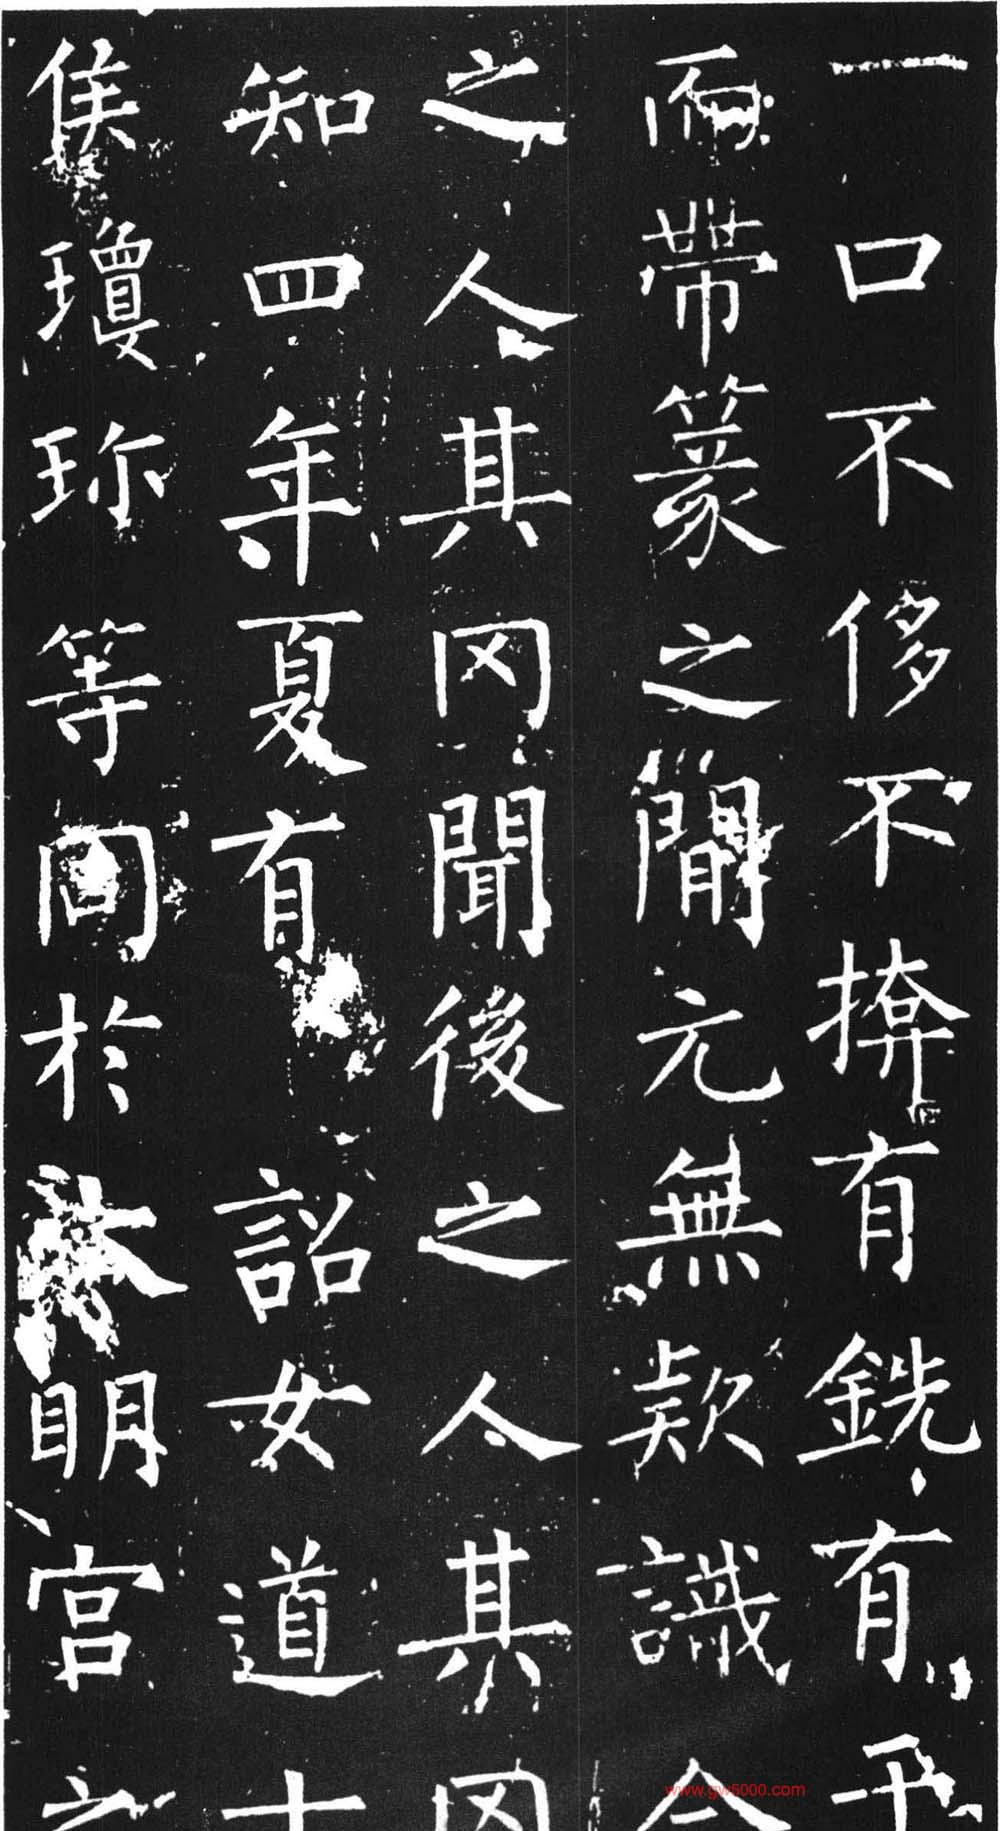 一口不侈不揜有銑有于
而帶篆之間元無款識今
之人其罔聞後之人其罔
知四年夏有詔女道士
侯瓊珍等同於大明宮之
www.gw5000.com